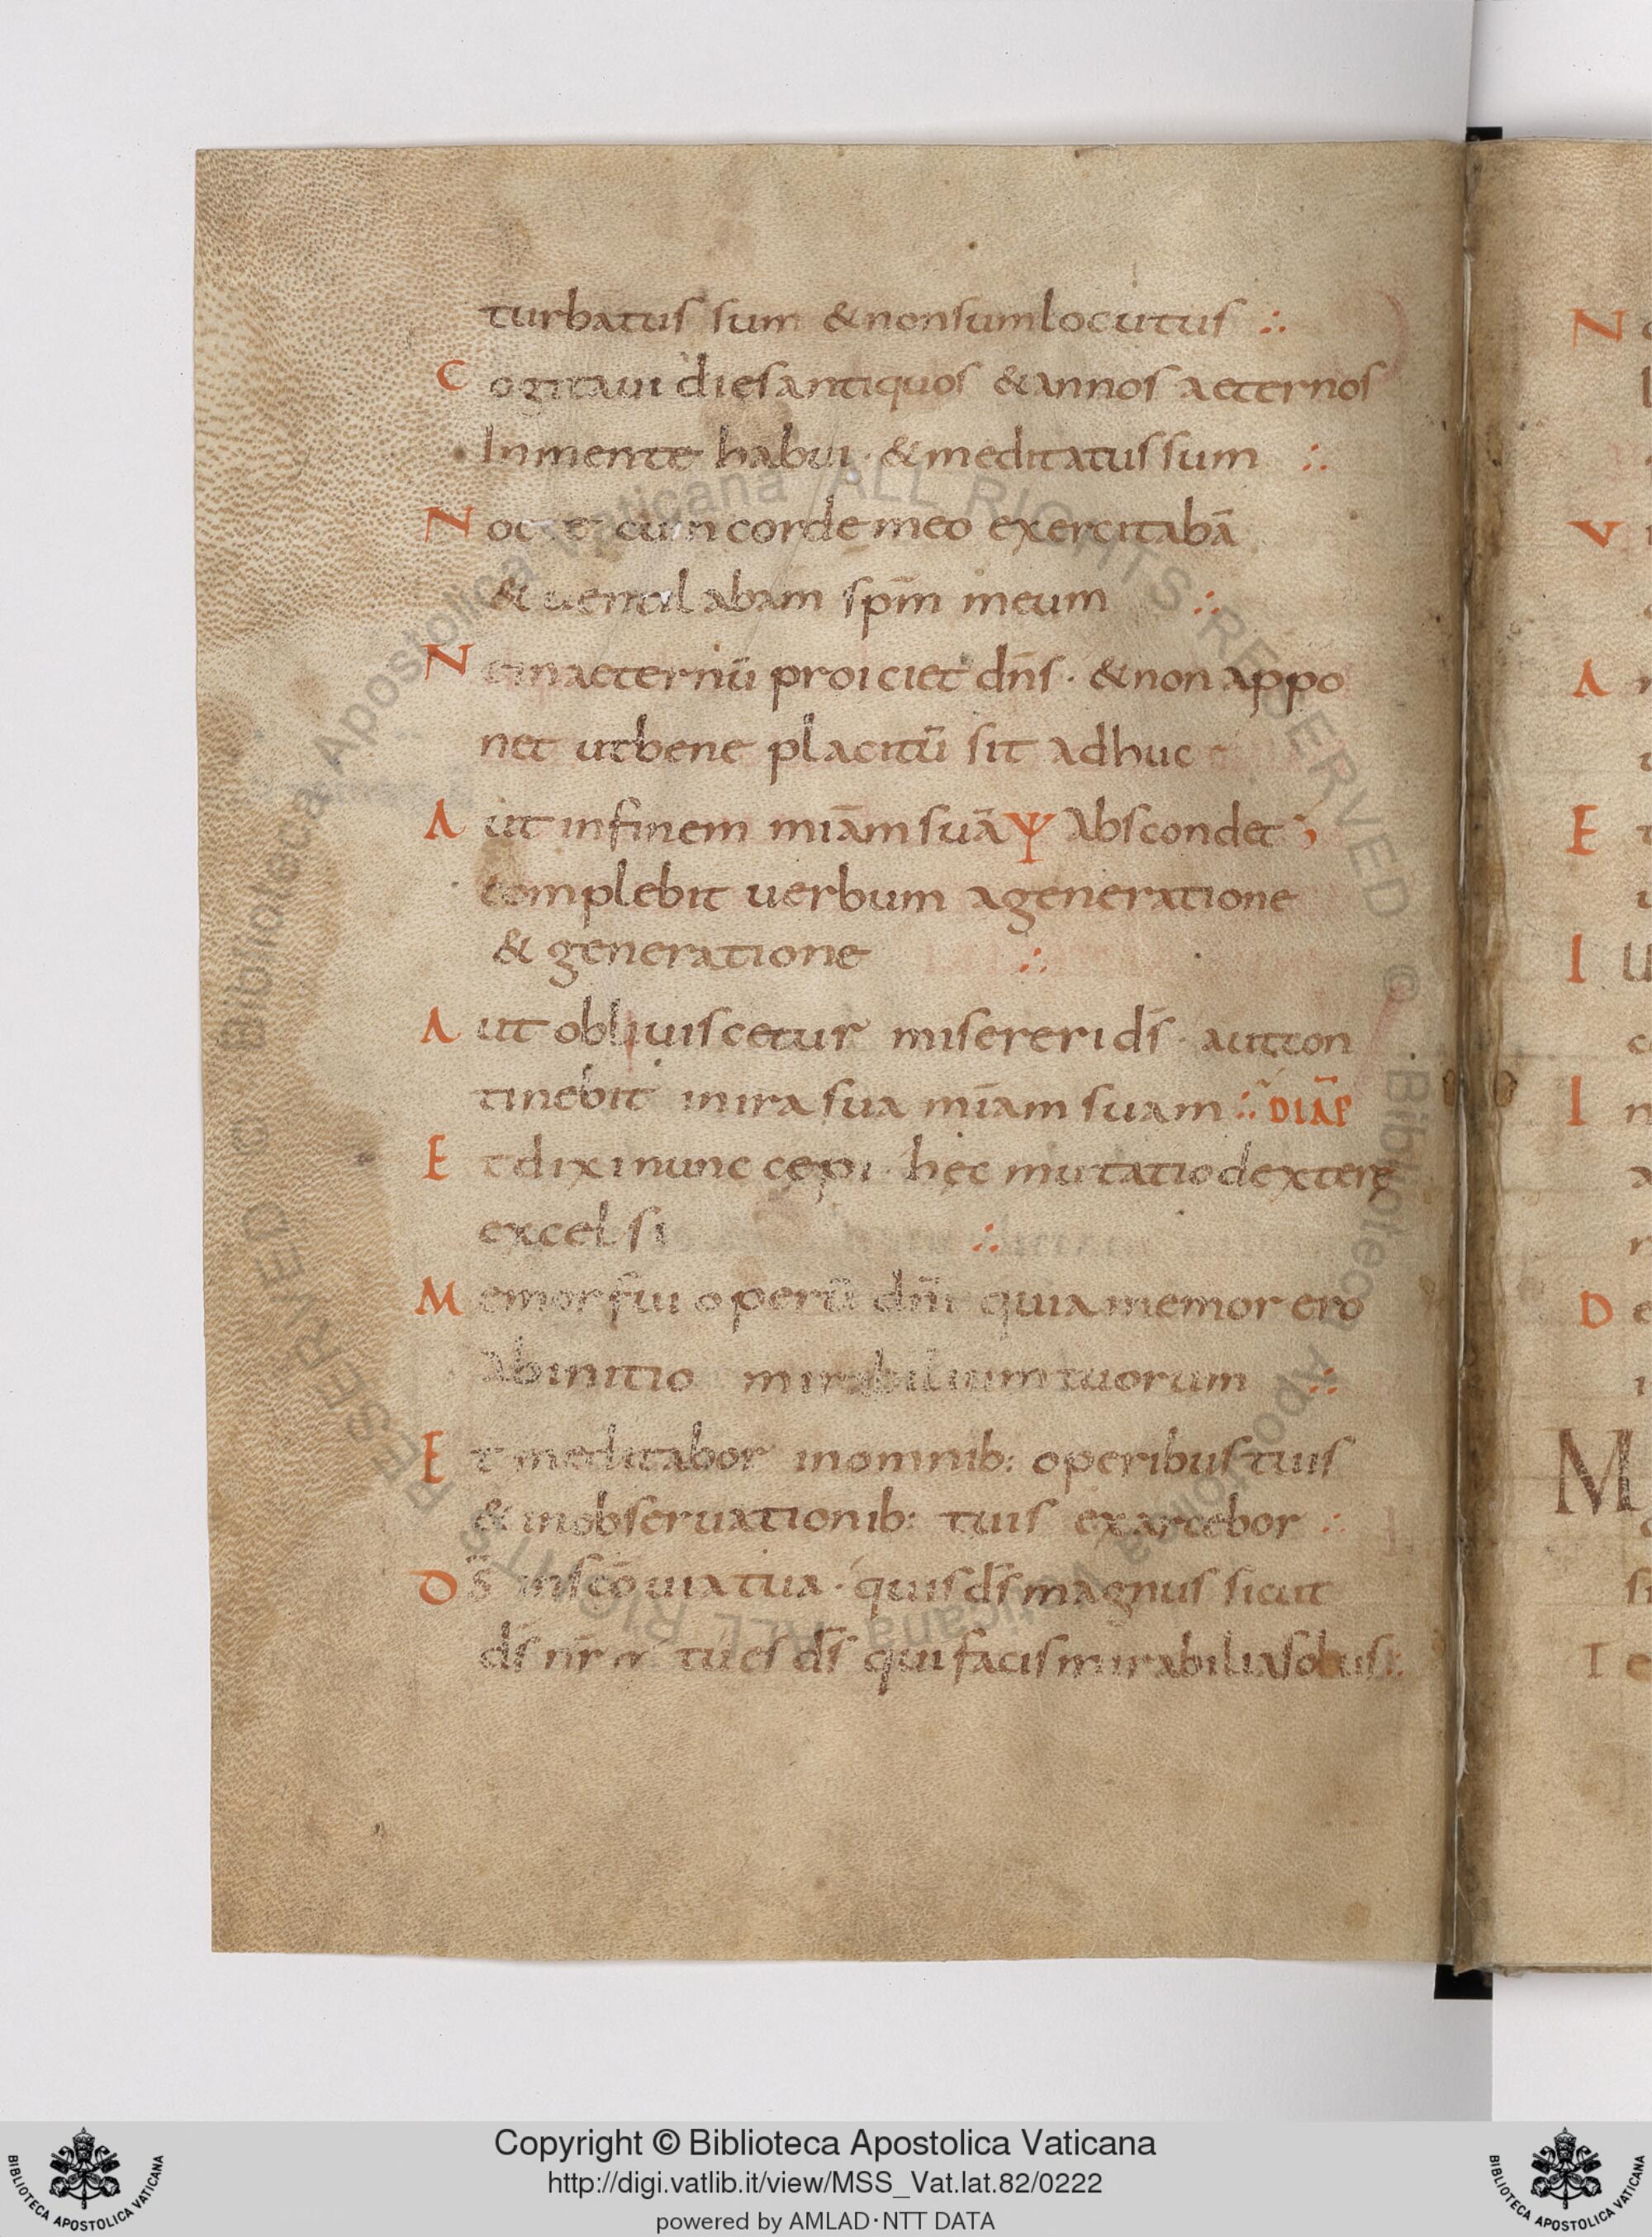 turbatus sum & nonsumlocutus ∴
C ogitaui diesantiquos & annos aeternos
Inmente habui · & meditatussum ∴
N octe cum corde meo exercitabā
& uentilabam sp̄m meum ∴
N uminaeternū proiciet dn̄s · & non appo
net utbene placitū sit adhuc
A ut infinem miām suā Ψ Abscondet
complebit uerbum ageneratione
& generatione ∴
A ut obliuiscetur misereri ds̄ · autcon
tinebit inira sua miām suam ∴ DIAP̄
E t dixi nunc cępi · hęc mutatio dexterę
excelsi ∴
M emor fui operū dn̄i quia memor ero
Abinitio mirabilium tuorum ∴
E t meditabor inomnib: operibus tuis
& inobseruationib: tuis exercebor ∴
D s̄ insc̄o uia tua · quis ds̄ magnus sicut
ds̄ nr̄ tu es ds̄ qui facis mirabilia solus ∴
N
V
A
E
I
I
D
M
I
Copyright © Biblioteca Apostolica Vaticana
http://digi.vatlib.it/view/MSS_Vat.lat.82/0222
powered by AMLAD·NTT DATA
BIBLIOTECA APOSTOLICA VATICANA
BIBLIOTECA APOSTOLICA VATICANA
© Biblioteca Apostolica Vaticana ALL RIGHTS RESERVED
© Biblioteca Apostolica Vaticana ALL RIGHTS RESERVED